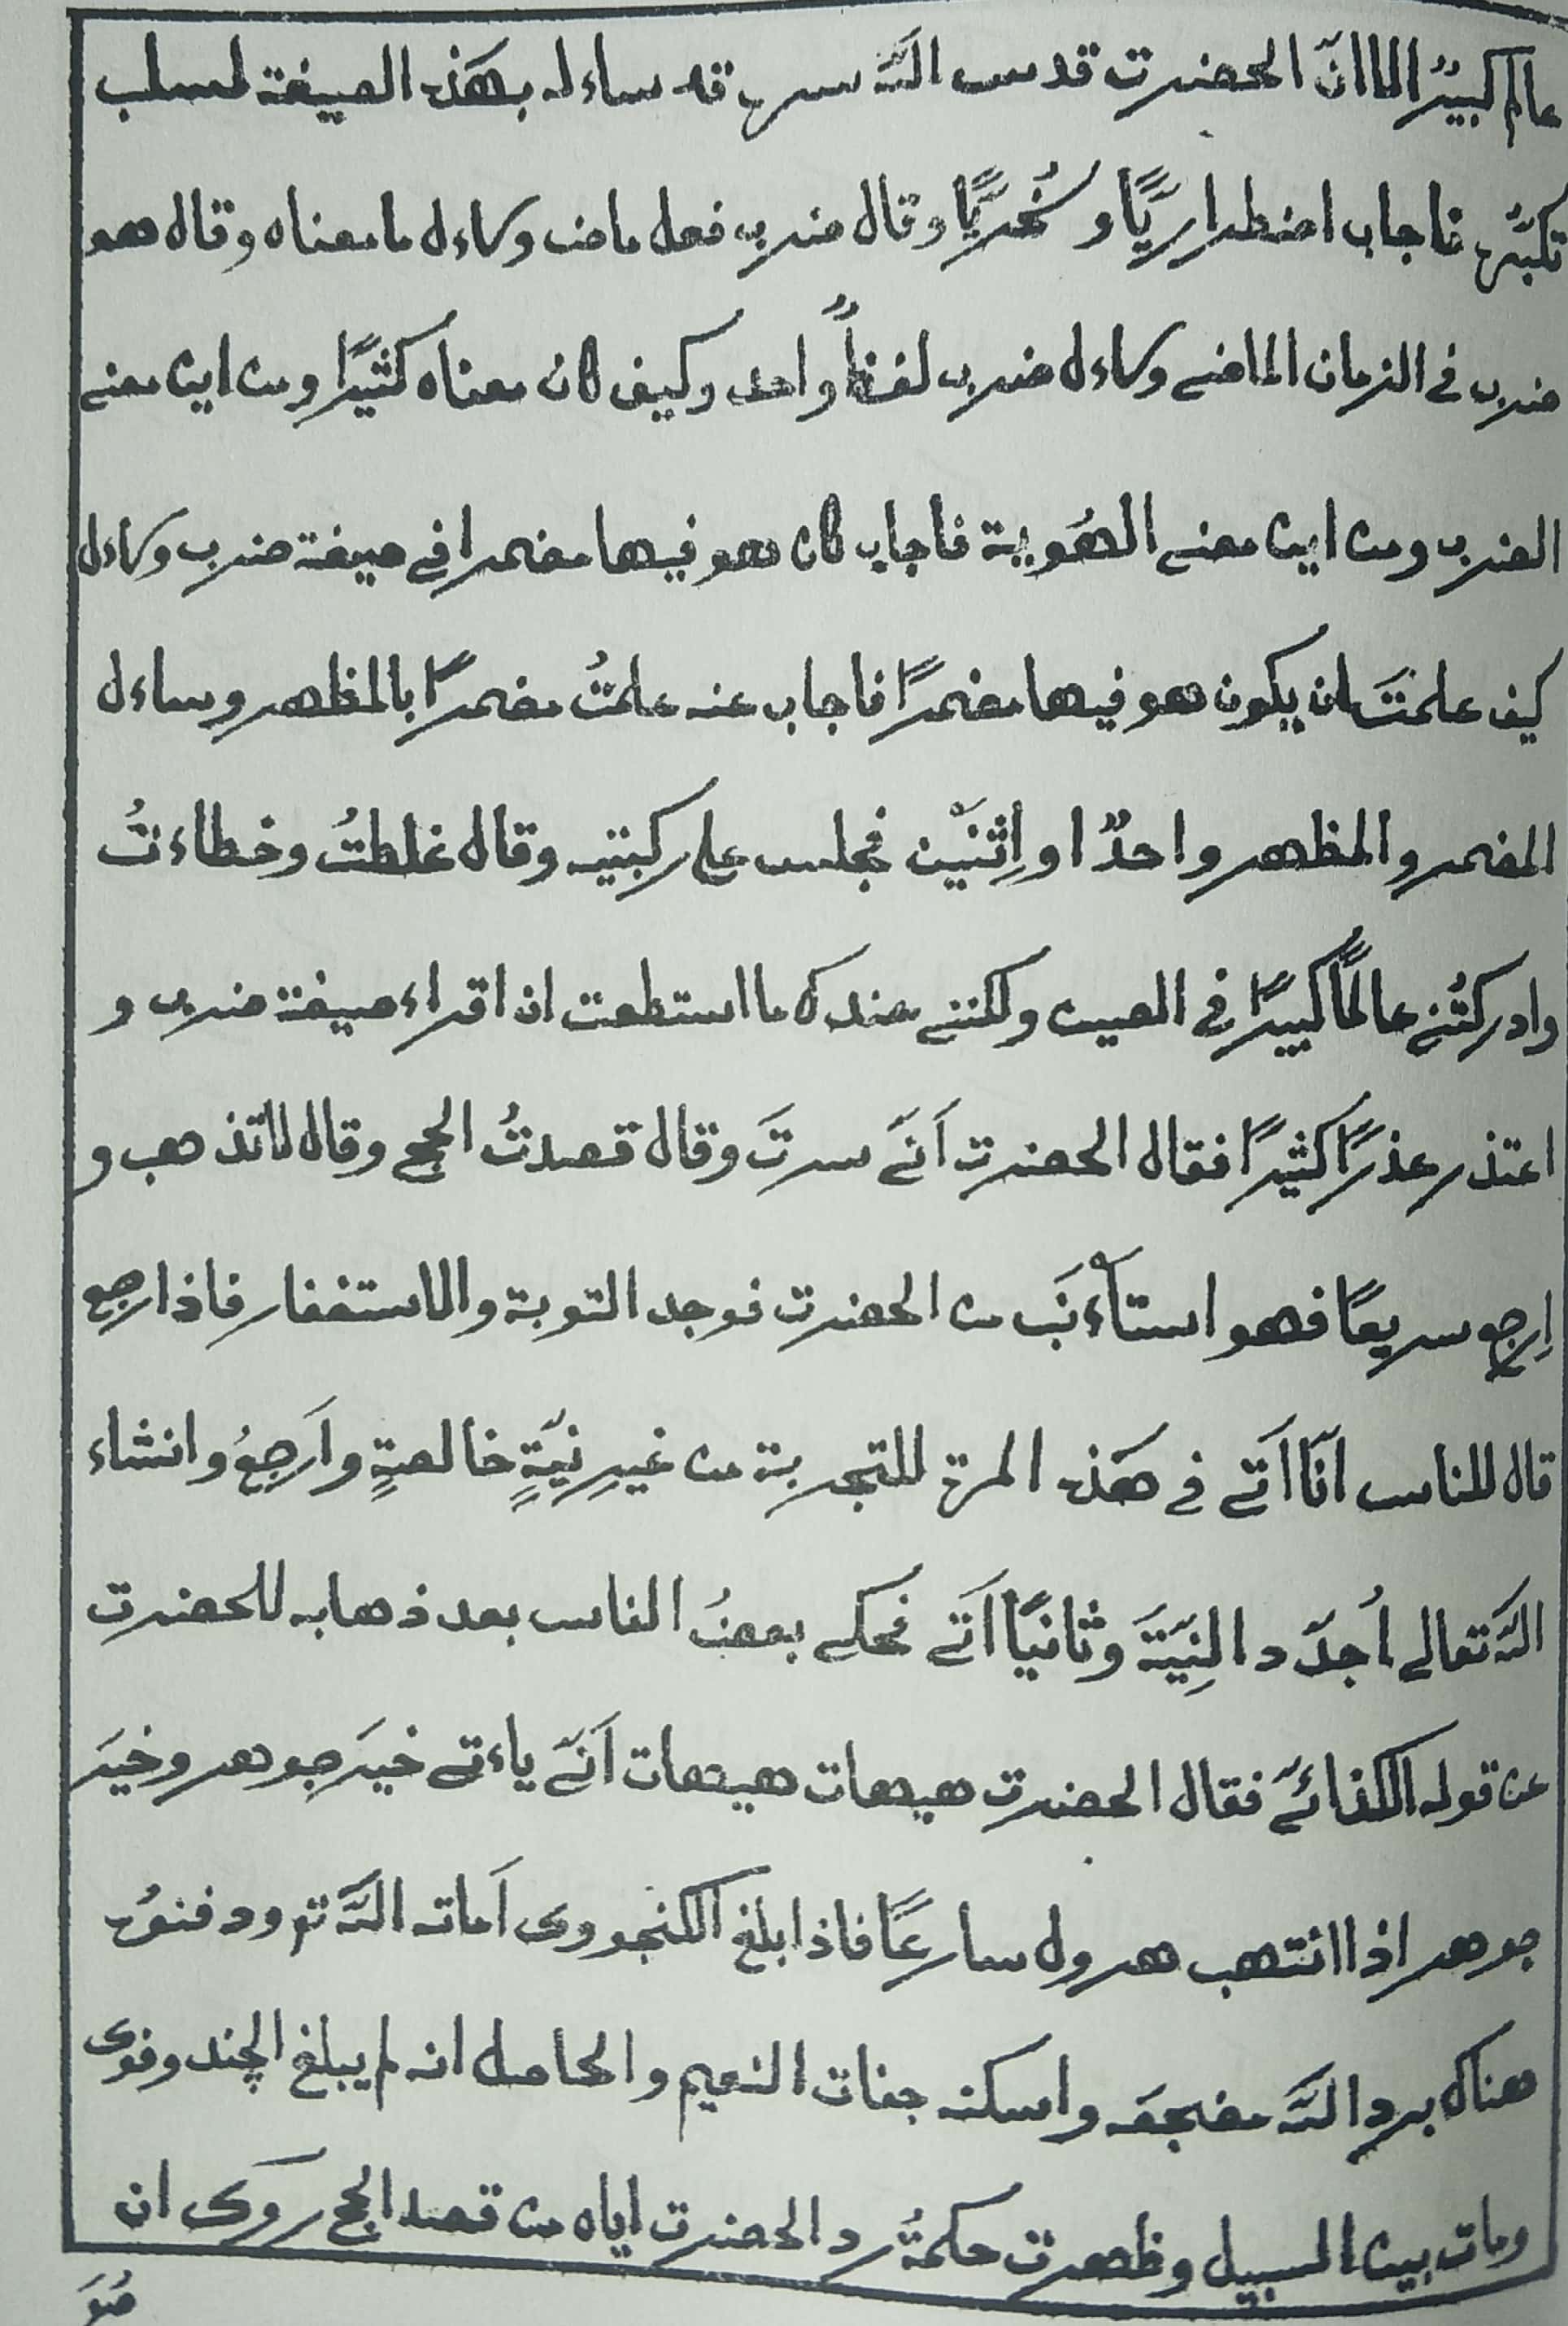 عالم كبيرٌ الا انّ الحضرت قدس الله سره قد ساءله بهذه الصيغة لسلب
تكبّره فاجاب اضطراريًّا و سُخريًّا وقال ضرب فعل ماض وساءل ما معناه وقال هو
ضرب في الزمان الماضے وساءل ضرب لفظاً واحد وكيف كان معناه كثيرًا ومن اين معنے
الضرب ومن اين معنے الهُوية فاجاب كان هو فيها مضمرا في صيغة ضرب وساءل
كيف علمتَ ان يكون هو فيها مضمرًا فاجاب عنه علمتُ مضمرًا بالمظهر وساءل
المضمر والمظهر واحدٌ او اِثنَيْن فجلس على ركبتيه وقال غلطتُ وخطاءتُ
وادركتُنے عالمًا كبيرًا في الصين ولكننے عندك ما استطعت ان اقراء صيغة ضرب و
اعتذر عذرًا كثيرًا فقال الحضرت اَنّے سرتَ وقال قصدتُ الحج وقال لاتذهب و
اِرجع سريعًا فهو استاءْنَب من الحضرت فوجد التوبة والاستغفار فاذا رجع
قال للناس انّا اَتے في هذه المرة للتجربة من غيرِ نيّةٍ خالصةٍ واَرجعُ وانشاء
الله تعالے اُجدّد النِيّةَ وثانيًا اَتے فحكے بعضُ الناس بعد ذهابه للحضرت
عن قوله الكذائےّ فقال الحضرت هيهات هيهات اَنّے ياءتے خير جوهر وخير
جوهر اذا انتهب هرول سارعًا فاذا بلغ الكنجووى اَماته الله تع ودفنوُه
هناك برد الله مضجعه واسكنه جنات النعيم والحاصل انه لم يبلغ الچندوفوى
ومات بين السبيل وظهرت حكمةُ رد الحضرت اياه من قصد الحج روى ان
ضوَ